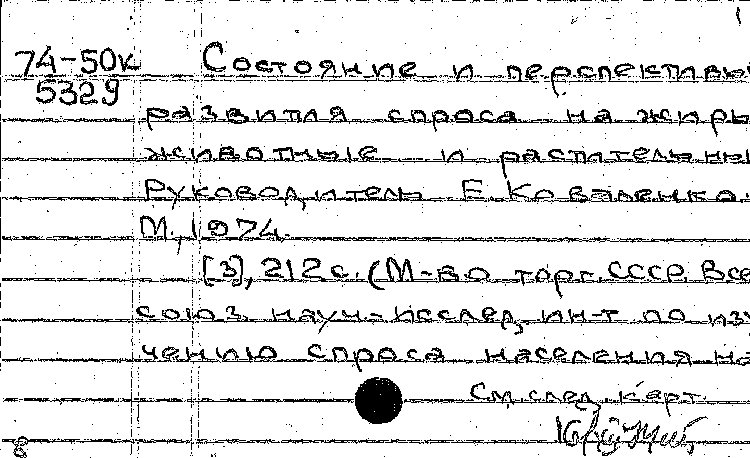 1
74-50к Состояние и перспективы
5329
развития спроса на жиры
животные и растительны
Руководитель Е. Коваленко.
М., 1974.
[3], 212 с. (М-во торг. СССР. Все
союз. науч.-исслед. ин-т по изу
чению спроса населения на
См. след. карт.
8